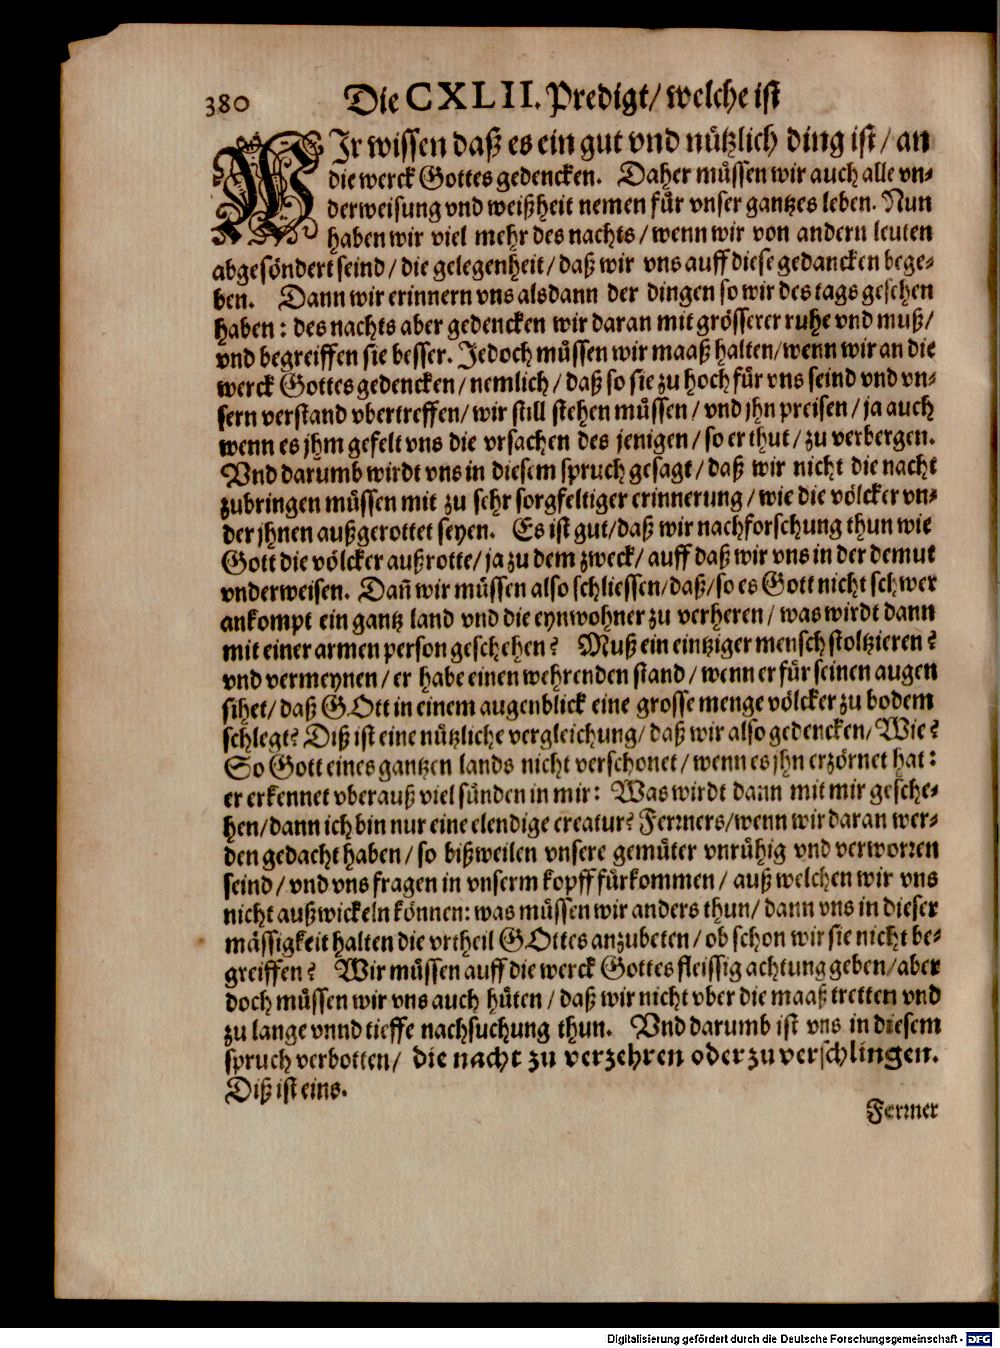 380 Die CXLII. Predigt/ welche ist
WIr wissen daß es ein gut vnd nützlich ding ist/ an
die werck Gottes gedencken. Daher müssen wir auch alle vn-
derweisung vnd weißheit nemen für vnser gantzes leben. Nun
haben wir viel mehr des nachts/ wenn wir von andern leuten
abgesöndert seind/ die gelegenheit/ daß wir vns auff diese gedancken bege-
ben. Dann wir erinnern vns alsdann der dingen so wir des tags gesehen
haben: des nachts aber gedencken wir daran mit grösserer ruhe vnd muß/
vnd begreiffen sie besser. Jedoch müssen wir maaß halten/ wenn wir an die
werck Gottes gedencken/ nemlich/ daß so sie zu hoch für vns seind vnd vn-
sern verstand vbertreffen/ wir still stehen müssen/ vnd jhn preisen/ ja auch
wenn es jhm gefelt vns die vrsachen des jenigen/ so er thut/ zu verbergen.
Vnd darumb wirdt vns in diesem spruch gesagt/ daß wir nicht die nacht
zubringen müssen mit zu sehr sorgfeltiger erinnerung/ wie die völcker vn-
der jhnen außgerottet seyen. Es ist gut/ daß wir nachforschung thun wie
Gott die völcker außrotte/ ja zu dem zweck/ auff daß wir vns in der demut
vnderweisen. Dañ wir müssen also schliessen/ daß/ so es Gott nicht schwer
ankompt ein gantz land vnd die eynwohner zu verheren/ was wirdt dann
mit einer armen person geschehen? Muß ein eintziger mensch stoltzieren?
vnd vermeynen/ er habe einen wehrenden stand/ wenn er für seinen augen
sihet/ daß GOtt in einem augenblick eine grosse menge völcker zu bodem
schlegt? Diß ist eine nützliche vergleichung/ daß wir also gedencken/ Wie?
So Gott eines gantzen lands nicht verschonet/ wenn es jhn erzörnet hat:
er erkennet vberauß viel sünden in mir: Was wirdt dann mit mir gesche-
hen/ dann ich bin nur eine elendige creatur? Ferrners/ wenn wir daran wer-
den gedacht haben/ so bißweilen vnsere gemüter vnrühig vnd verworren
seind/ vnd vns fragen in vnserm kopff fürkommen/ auß welchen wir vns
nicht außwickeln können: was müssen wir anders thun/ dann vns in dieser
mässigkeit halten die vrtheil GOttes anzubeten/ ob schon wir sie nicht be-
greiffen? Wir müssen auff die werck Gottes fleissig achtung geben/ aber
doch müssen wir vns auch hüten/ daß wir nicht vber die maaß tretten vnd
zu lange vnnd tieffe nachsuchung thun. Vnd darumb ist vns in diesem
spruch verbotten/ die nacht zu verzehren oder zu verschlingen.
Diß ist eins.
Ferrner
Digitalisierung gefördert durch die Deutsche Forschungsgemeinschaft - DFG